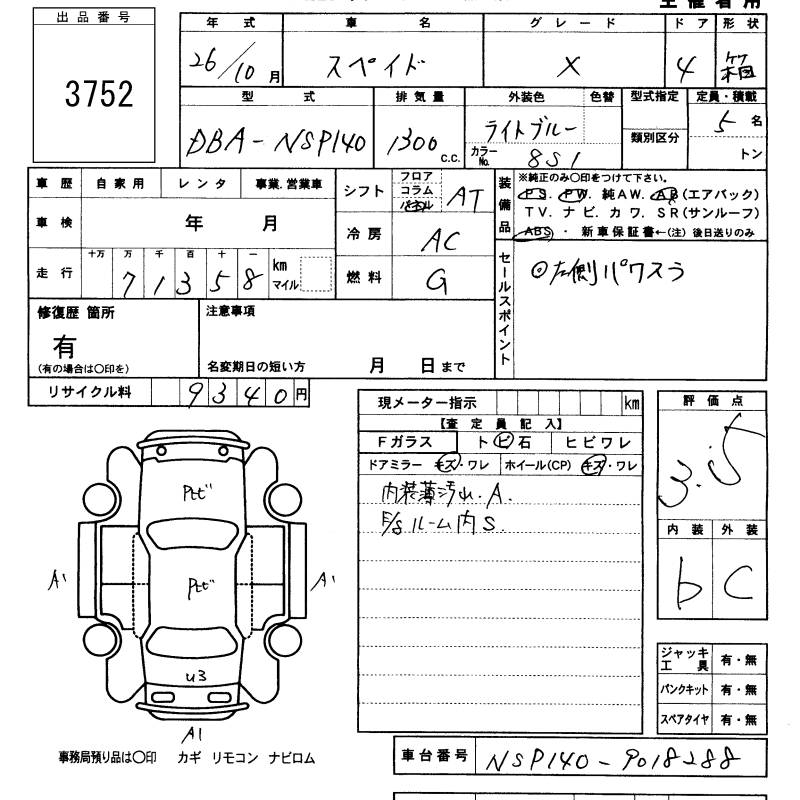 主催者用
出品番号
3752
年式 車名 グレード ドア 形状
26/10月 スペイド X 4 箱
型式 排気量 外装色 色替 型式指定 定員・積載
DBA-NSP140 1300c.c. ライトブルー 類別区分 5名
カラーNo. 8S1 トン
車歴 自家用 レンタ 事業.営業車
車検 年 月
走行 十万 万 千 百 十 一
71358 km マイル
シフト フロア コラム パネル AT
冷房 AC
燃料 G
装備品 ※純正のみ○印をつけて下さい。
PS. PW. 純AW. AB(エアバック)
TV. ナビ. カワ. SR(サンルーフ)
ABS ・ 新車保証書←(注) 後日送りのみ
セールスポイント
◎左側パワスラ
修復歴 箇所
有
(有の場合は○印を)
注意事項
名変期日の短い方 月 日まで
リサイクル料 9340円
現メーター指示 km
【査定員記入】
Fガラス ト ビ 石 ヒビワレ
ドアミラー キズ・ワレ ホイール(CP) キズ・ワレ
内装薄汚れ.A.
F/Sルーム内S.
評価点
3.5
内装 外装
b C
Ptぜ
A1 Ptぜ A1
U3
A1
ジャッキ工具 有・無
パンクキット 有・無
スペアタイヤ 有・無
事務局預り品は○印 カギ リモコン ナビロム
車台番号 NSP140-9018288